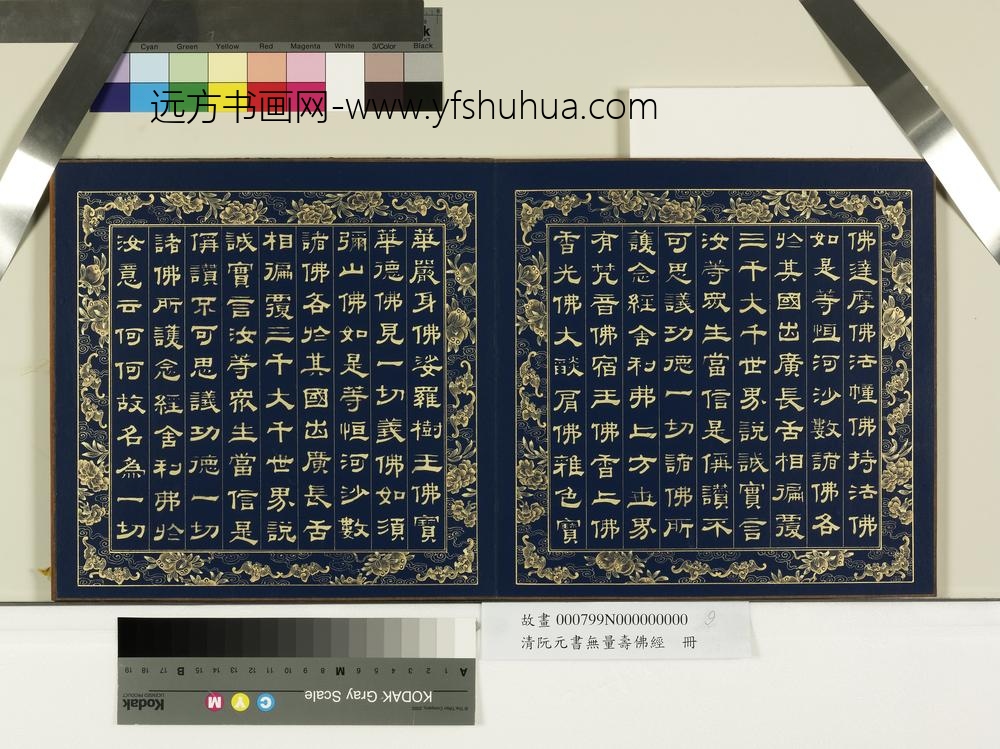 Cyan Green Yellow Red Magenta White 3/Color Black
远方书画网-www.yfshuhua.com
佛達摩佛法幢佛持法佛
如是等恒河沙數諸佛各
於其國出廣長舌相徧覆
三千大千世界說誠實言
汝等眾生當信是偁讚不
可思議功德一切諸佛所
護念經舍利弗上方世界
有梵音佛宿王佛香上佛
香光佛大燄肩佛雜色寶
華嚴身佛娑羅樹王佛寶
華德佛見一切義佛如須
彌山佛如是等恒河沙數
諸佛各於其國出廣長舌
相徧覆三千大千世界說
誠實言汝等眾生當信是
偁讚不可思議功德一切
諸佛所護念經舍利弗於
汝意云何何故名為一切
故畫 000799N000000000 9
清阮元書無量壽佛經 冊
A 1 2 3 4 5 6 M 8 9 10 11 12 13 14 15 B 17 18 19
KODAK Gray Scale
C Y M
Kodak
LICENSED PRODUCT